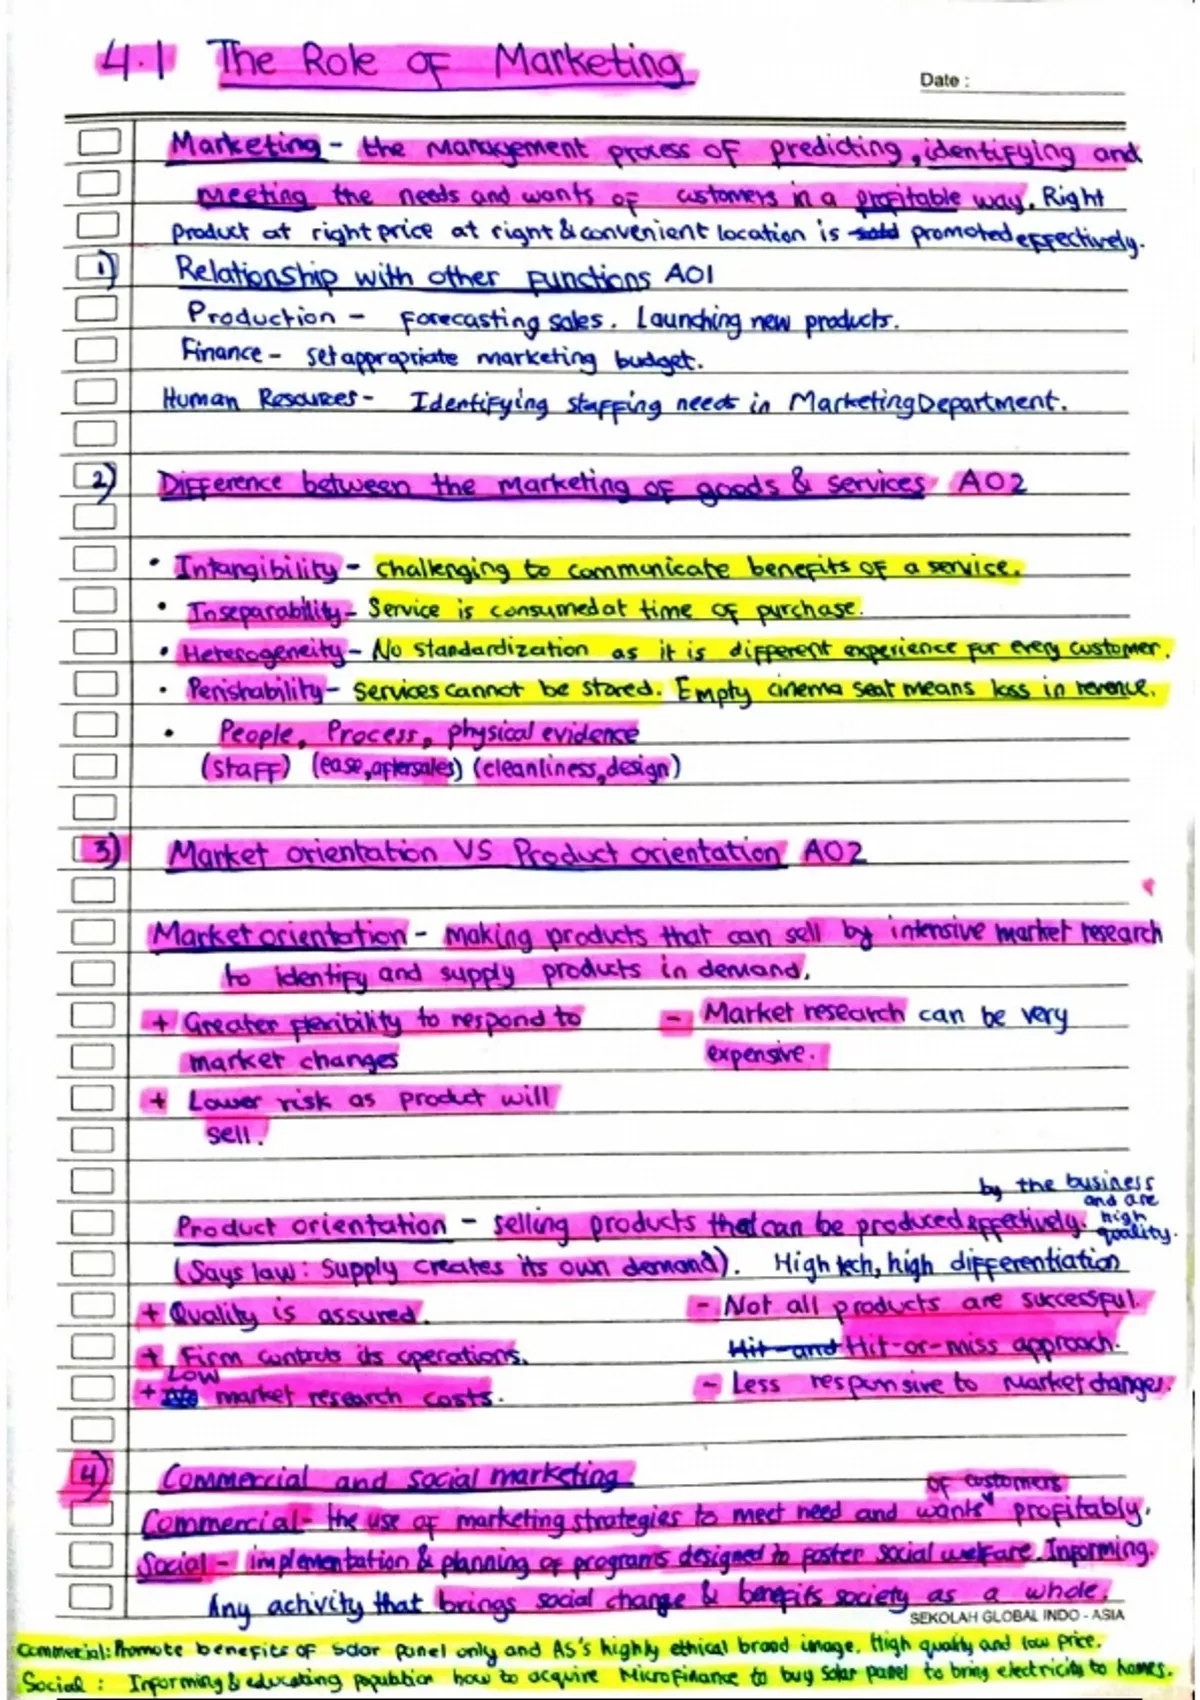 4.1 The Role of Marketing
Date :
Marketing - the management process of predicting, identifying and
meeting the needs and wants of customers in a profitable way. Right
product at right price at right & convenient location is sold promoted effectively.
1) Relationship with other functions AO1
Production - forecasting sales. Launching new products.
Finance - set appropriate marketing budget.
Human Resources - Identifying staffing needs in Marketing Department.
2) Difference between the marketing of goods & services AO2
• Intangibility - challenging to communicate benefits of a service.
• Inseparability - Service is consumed at time of purchase.
• Heterogeneity - No standardization as it is different experience for every customer.
• Perishability - Services cannot be stored. Empty cinema seat means loss in revenue.
• People, Process, physical evidence
(staff) (ease, aftersales) (cleanliness, design)
3) Market orientation VS Product orientation AO2
Market orientation - making products that can sell by intensive market research
to identify and supply products in demand.
+ Greater flexibility to respond to - Market research can be very
market changes expensive.
+ Lower risk as product will
sell.
by the business
and are
high
quality.
Product orientation - selling products that can be produced effectively.
(Says law : Supply creates its own demand). High tech, high differentiation
+ Quality is assured. - Not all products are successful.
+ Firm controls its operations. Hit-and Hit-or-miss approach.
+ Low market research costs. - Less responsive to market changes.
4) Commercial and social marketing
of customers
Commercial - the use of marketing strategies to meet need and wants profitably.
Social - implementation & planning of programs designed to foster social welfare. Informing.
Any activity that brings social change & benefits society as a whole.
SEKOLAH GLOBAL INDO - ASIA
Commercial: Promote benefits of Solar panel only and AS's highly ethical brand image. High quality and low price.
Social : Informing & educating population how to acquire Microfinance to buy Solar panel to bring electricity to homes.